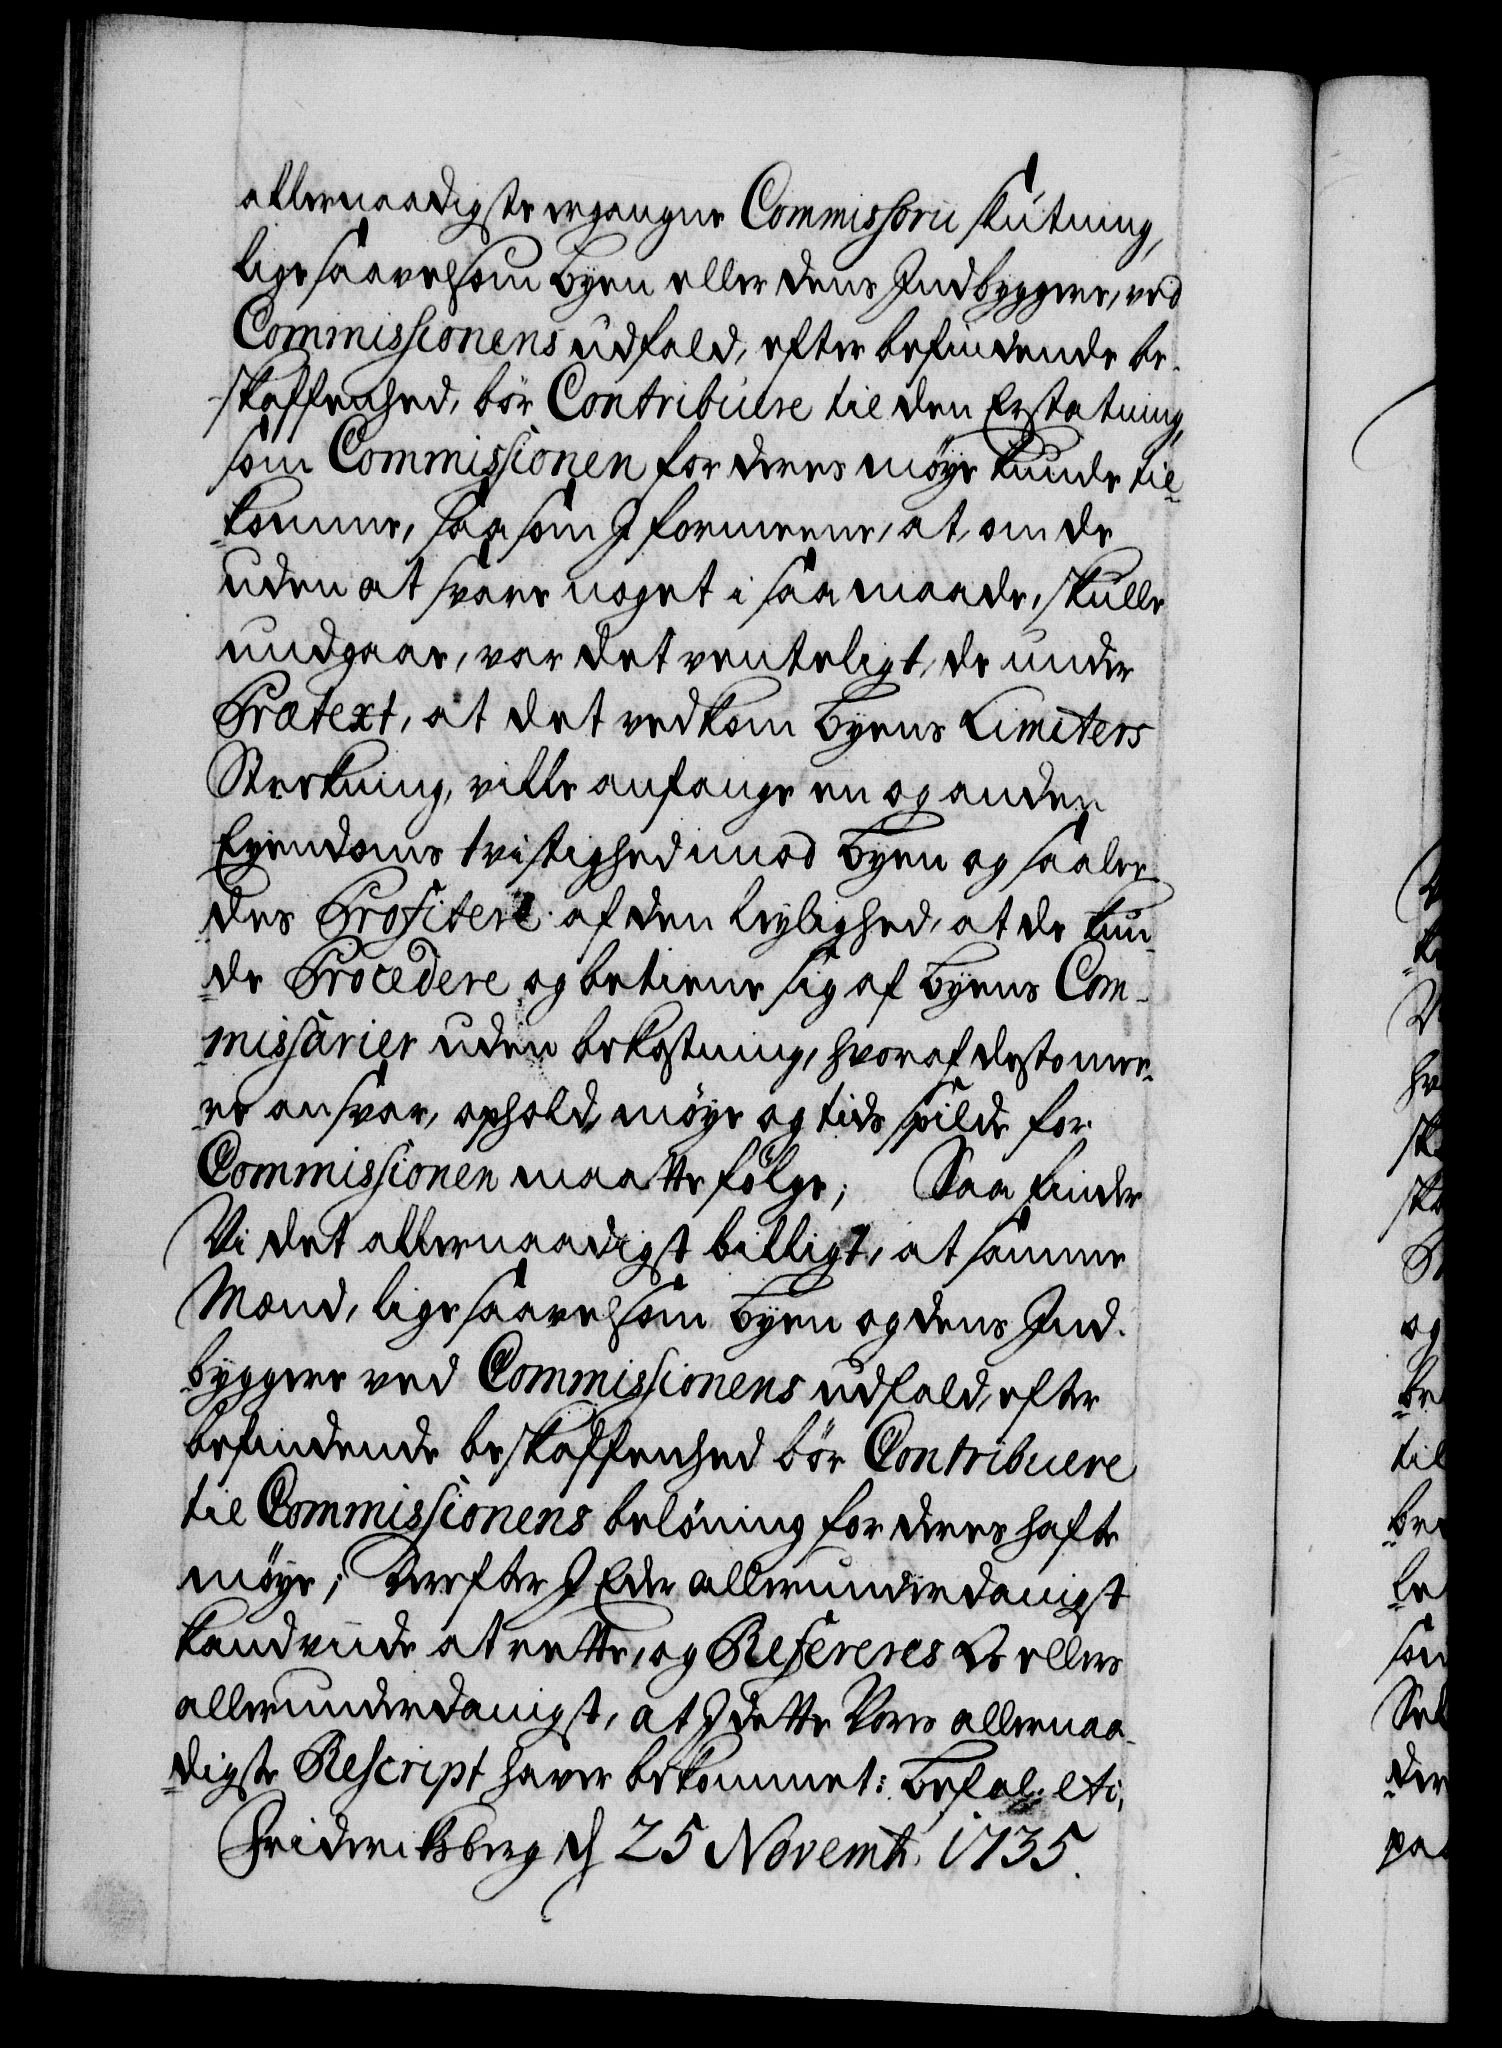 allernaadigste ergangne Commissorii slutning,
lige saavelsom Byen eller dens Indbyggere, ved
Commissionens udfald, efter befindende be-
skaffenhed, bör Contribuere til den Erstatning,
som Commissionen for deres möye kunde til-
komme, saasom I formeene, at, om de
uden at svare noget i saa maade, skulle
undgaae, var det venteligt, de under
Prætext, at det vedkom Byens Limiters
Strekning, ville anfange en og anden
Eyendoms tvistighed imod Byen og saale-
des Profitere af den leylighed, at de kun-
de Procedere og betiene sig af Byens Com-
missarier uden bekostning, hvoraf desto mee-
re ansvar, ophold, möye og tids spilde for
Commissionen maatte fölge; Saa finder
Vi det allernaadigst billigt, at samme
Mænd, lige saavelsom Byen og dens Ind-
byggere ved Commissionens udfald, efter
befindende beskaffenhed bör Contribuere
til Commissionens belöning for deres hafte
möye; Derefter I Eder allerunderdanigst
kand viide at rette, og Refereres De ellers
allerunderdanigst, at I dette Vores allernaa-
digste Rescript haver bekommet: Befal. etc.
Friderichsberg d 25 Novembr. 1735.